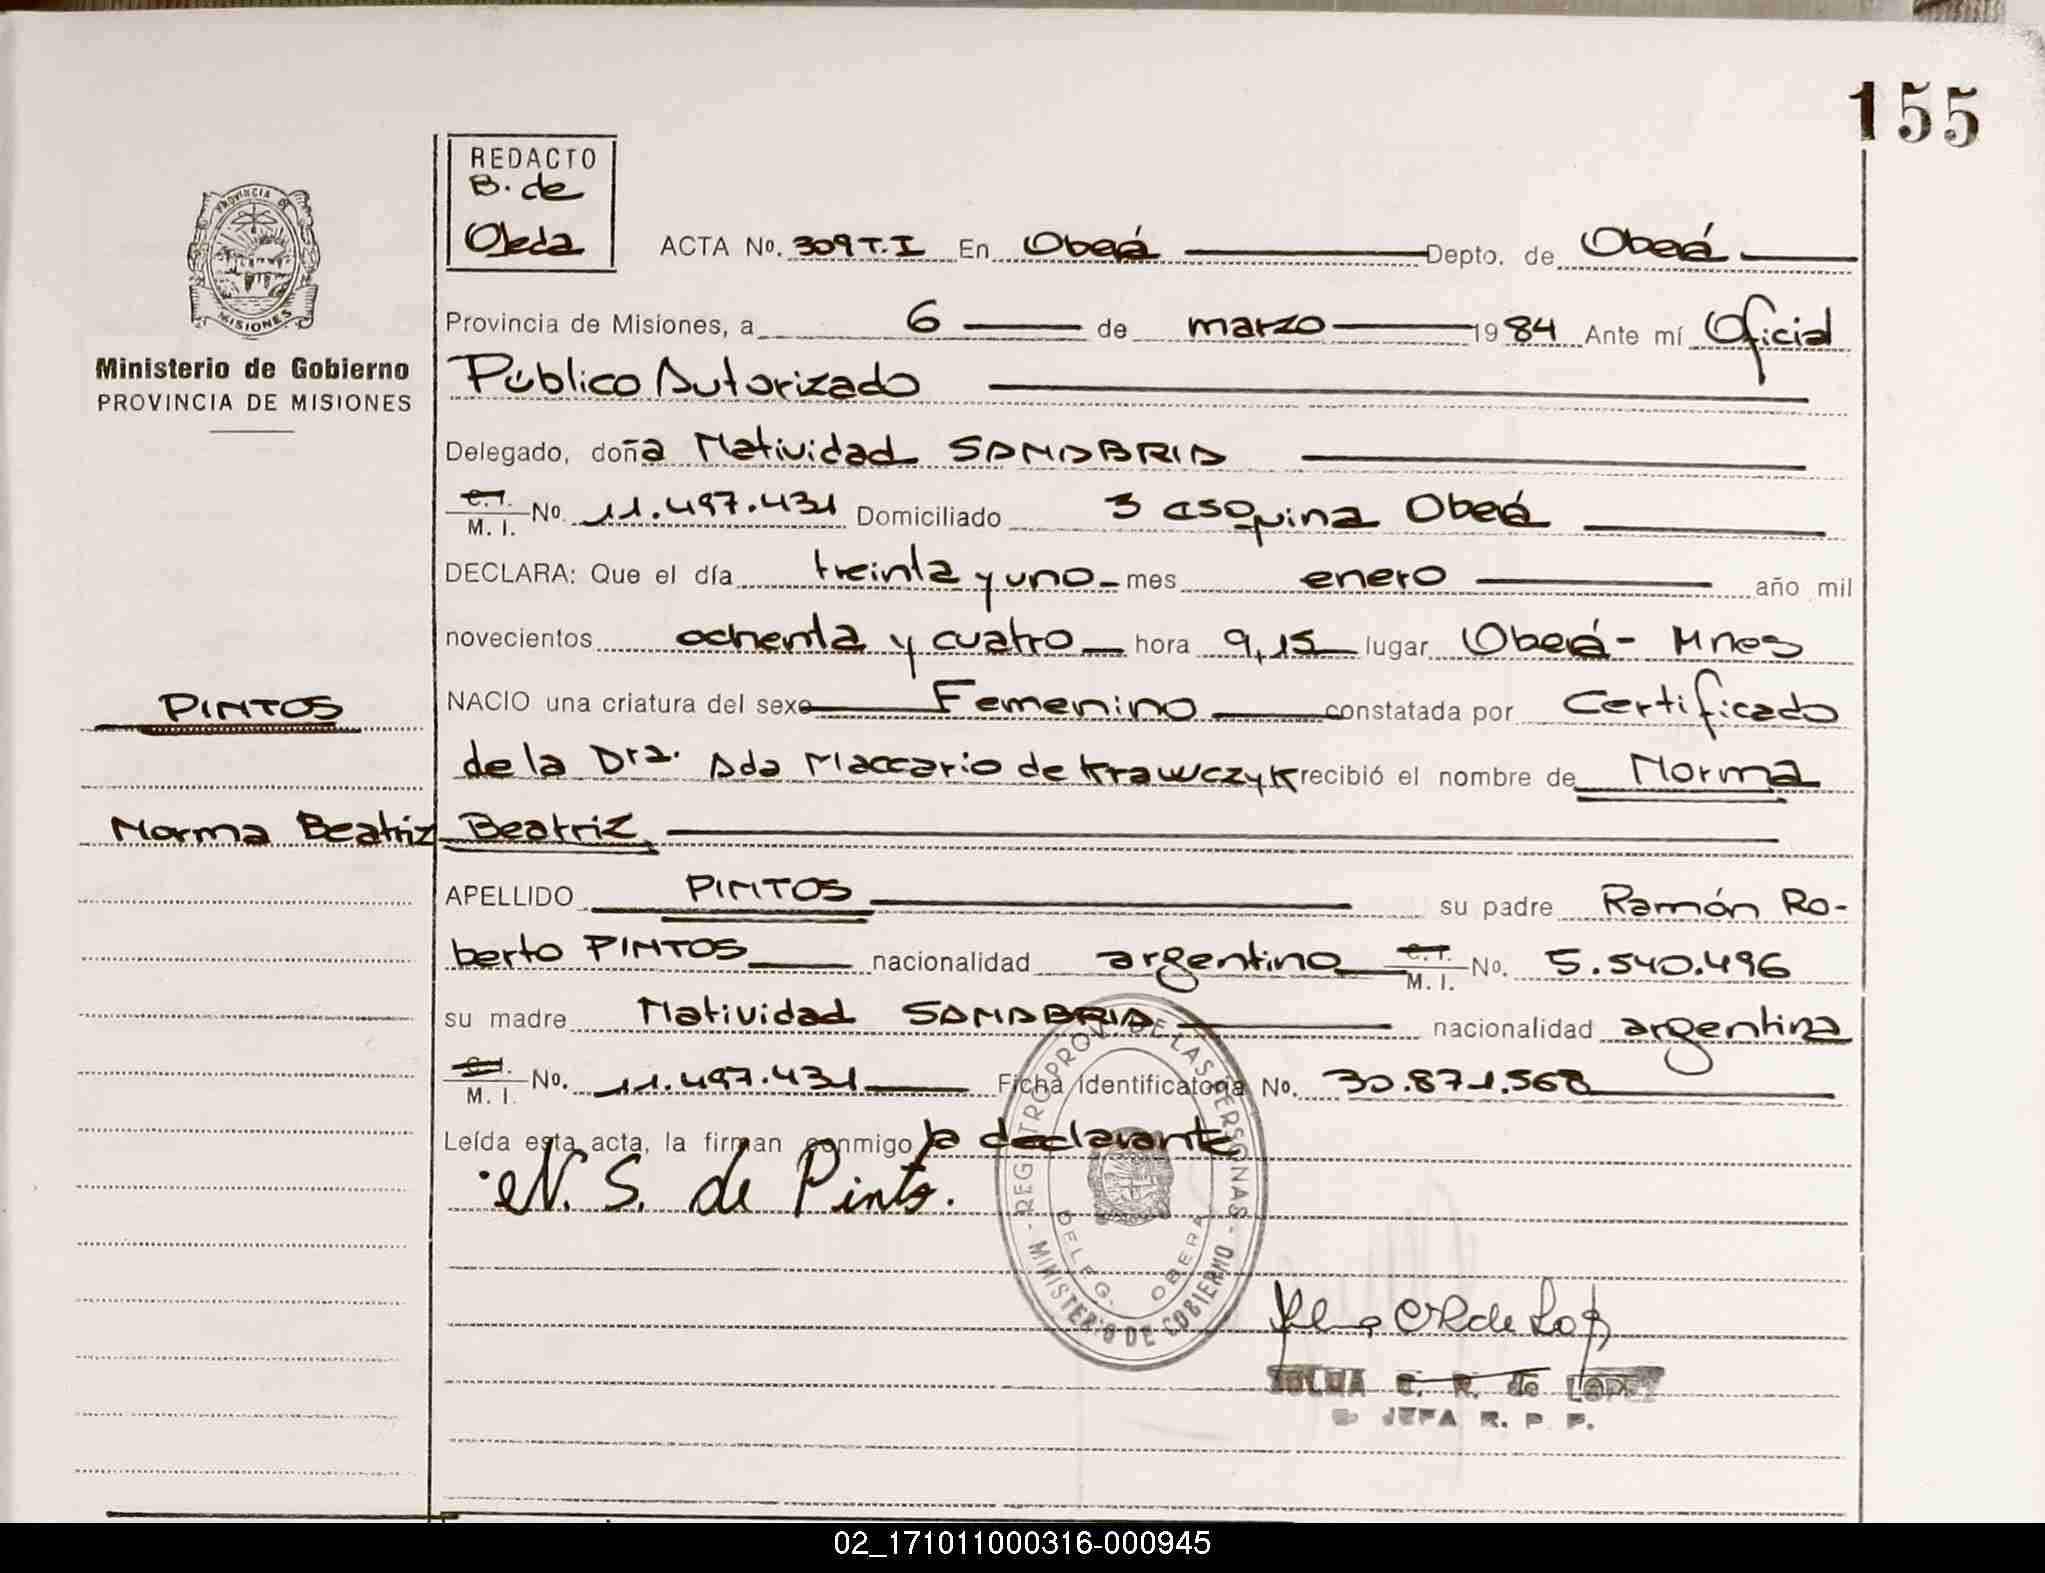 155
REDACTO
B. de
Ojeda
ACTA No. 309 T.I En Oberá Depto. de Oberá
PROVINCIA DE
MISIONES
Provincia de Misiones, a 6 de marzo 1984 Ante mí Oficial
Ministerio de Gobierno
PROVINCIA DE MISIONES
Público Autorizado
Delegado, doña Natividad SANABRIA
C.I.
M. I. No. 11.497.431 Domiciliado 3 esquina Oberá
DECLARA: Que el día treinta y uno mes enero año mil
novecientos ochenta y cuatro hora 9,15 lugar Oberá - Mnes
PINTOS
NACIO una criatura del sexo Femenino constatada por Certificado
de la Dra. Ada Maccario de Krawczyk recibió el nombre de Norma
Norma Beatriz
Beatriz
APELLIDO PINTOS su padre Ramón Ro-
berto PINTOS nacionalidad argentino C.I. M. I. No. 5.540.496
su madre Natividad SANABRIA nacionalidad argentina
M. I. No. 11.497.431 Ficha Identificatoria No. 30.871.568
Leída esta acta, la firman conmigo la declarante
N. S. de Pinto.
REGISTRO PROV. DE LAS PERSONAS
DELEG. OBERA
MINISTERIO DE GOBIERNO
de LOPEZ
JEFA R. P. P.
02_171011000316-000945